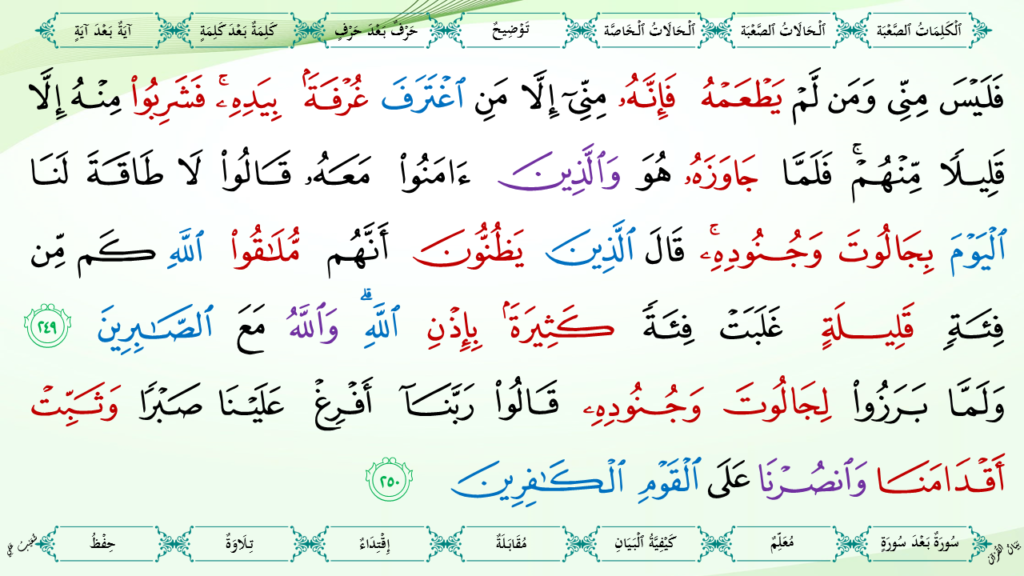 اَلْكَلِمَاتُ الصَّعْبَة اَلْحَالَاتُ الصَّعْبَة اَلْحَالَاتُ الْخَاصَّة تَوْضِيحٌ حَرْفٌ بَعْدَ حَرْفٍ كَلِمَةٌ بَعْدَ كَلِمَةٍ آيَةٌ بَعْدَ آيَةٍ
فَلَيْسَ مِنِّى وَمَن لَّمْ يَطْعَمْهُ فَإِنَّهُۥ مِنِّىٓ إِلَّا مَنِ ٱغْتَرَفَ غُرْفَةًۢ بِيَدِهِۦۚ فَشَرِبُوا۟ مِنْهُ إِلَّا
قَلِيلًا مِّنْهُمْۚ فَلَمَّا جَاوَزَهُۥ هُوَ وَٱلَّذِينَ ءَامَنُوا۟ مَعَهُۥ قَالُوا۟ لَا طَاقَةَ لَنَا
ٱلْيَوْمَ بِجَالُوتَ وَجُنُودِهِۦۚ قَالَ ٱلَّذِينَ يَظُنُّونَ أَنَّهُم مُّلَـٰقُوا۟ ٱللَّهِ كَم مِّن
فِئَةٍ قَلِيلَةٍ غَلَبَتْ فِئَةً كَثِيرَةًۢ بِإِذْنِ ٱللَّهِۗ وَٱللَّهُ مَعَ ٱلصَّـٰبِرِينَ ٢٤٩
وَلَمَّا بَرَزُوا۟ لِجَالُوتَ وَجُنُودِهِۦ قَالُوا۟ رَبَّنَآ أَفْرِغْ عَلَيْنَا صَبْرًا وَثَبِّتْ
أَقْدَامَنَا وَٱنصُرْنَا عَلَى ٱلْقَوْمِ ٱلْكَـٰفِرِينَ ٢٥٠
سُورَةٌ بَعْدَ سُورَةٍ مُعَلِّمٌ كَيْفِيَّةُ الْبَيَانِ مُقَابَلَةٌ إِقْتِدَاءٌ تِلَاوَةٌ حِفْظُ